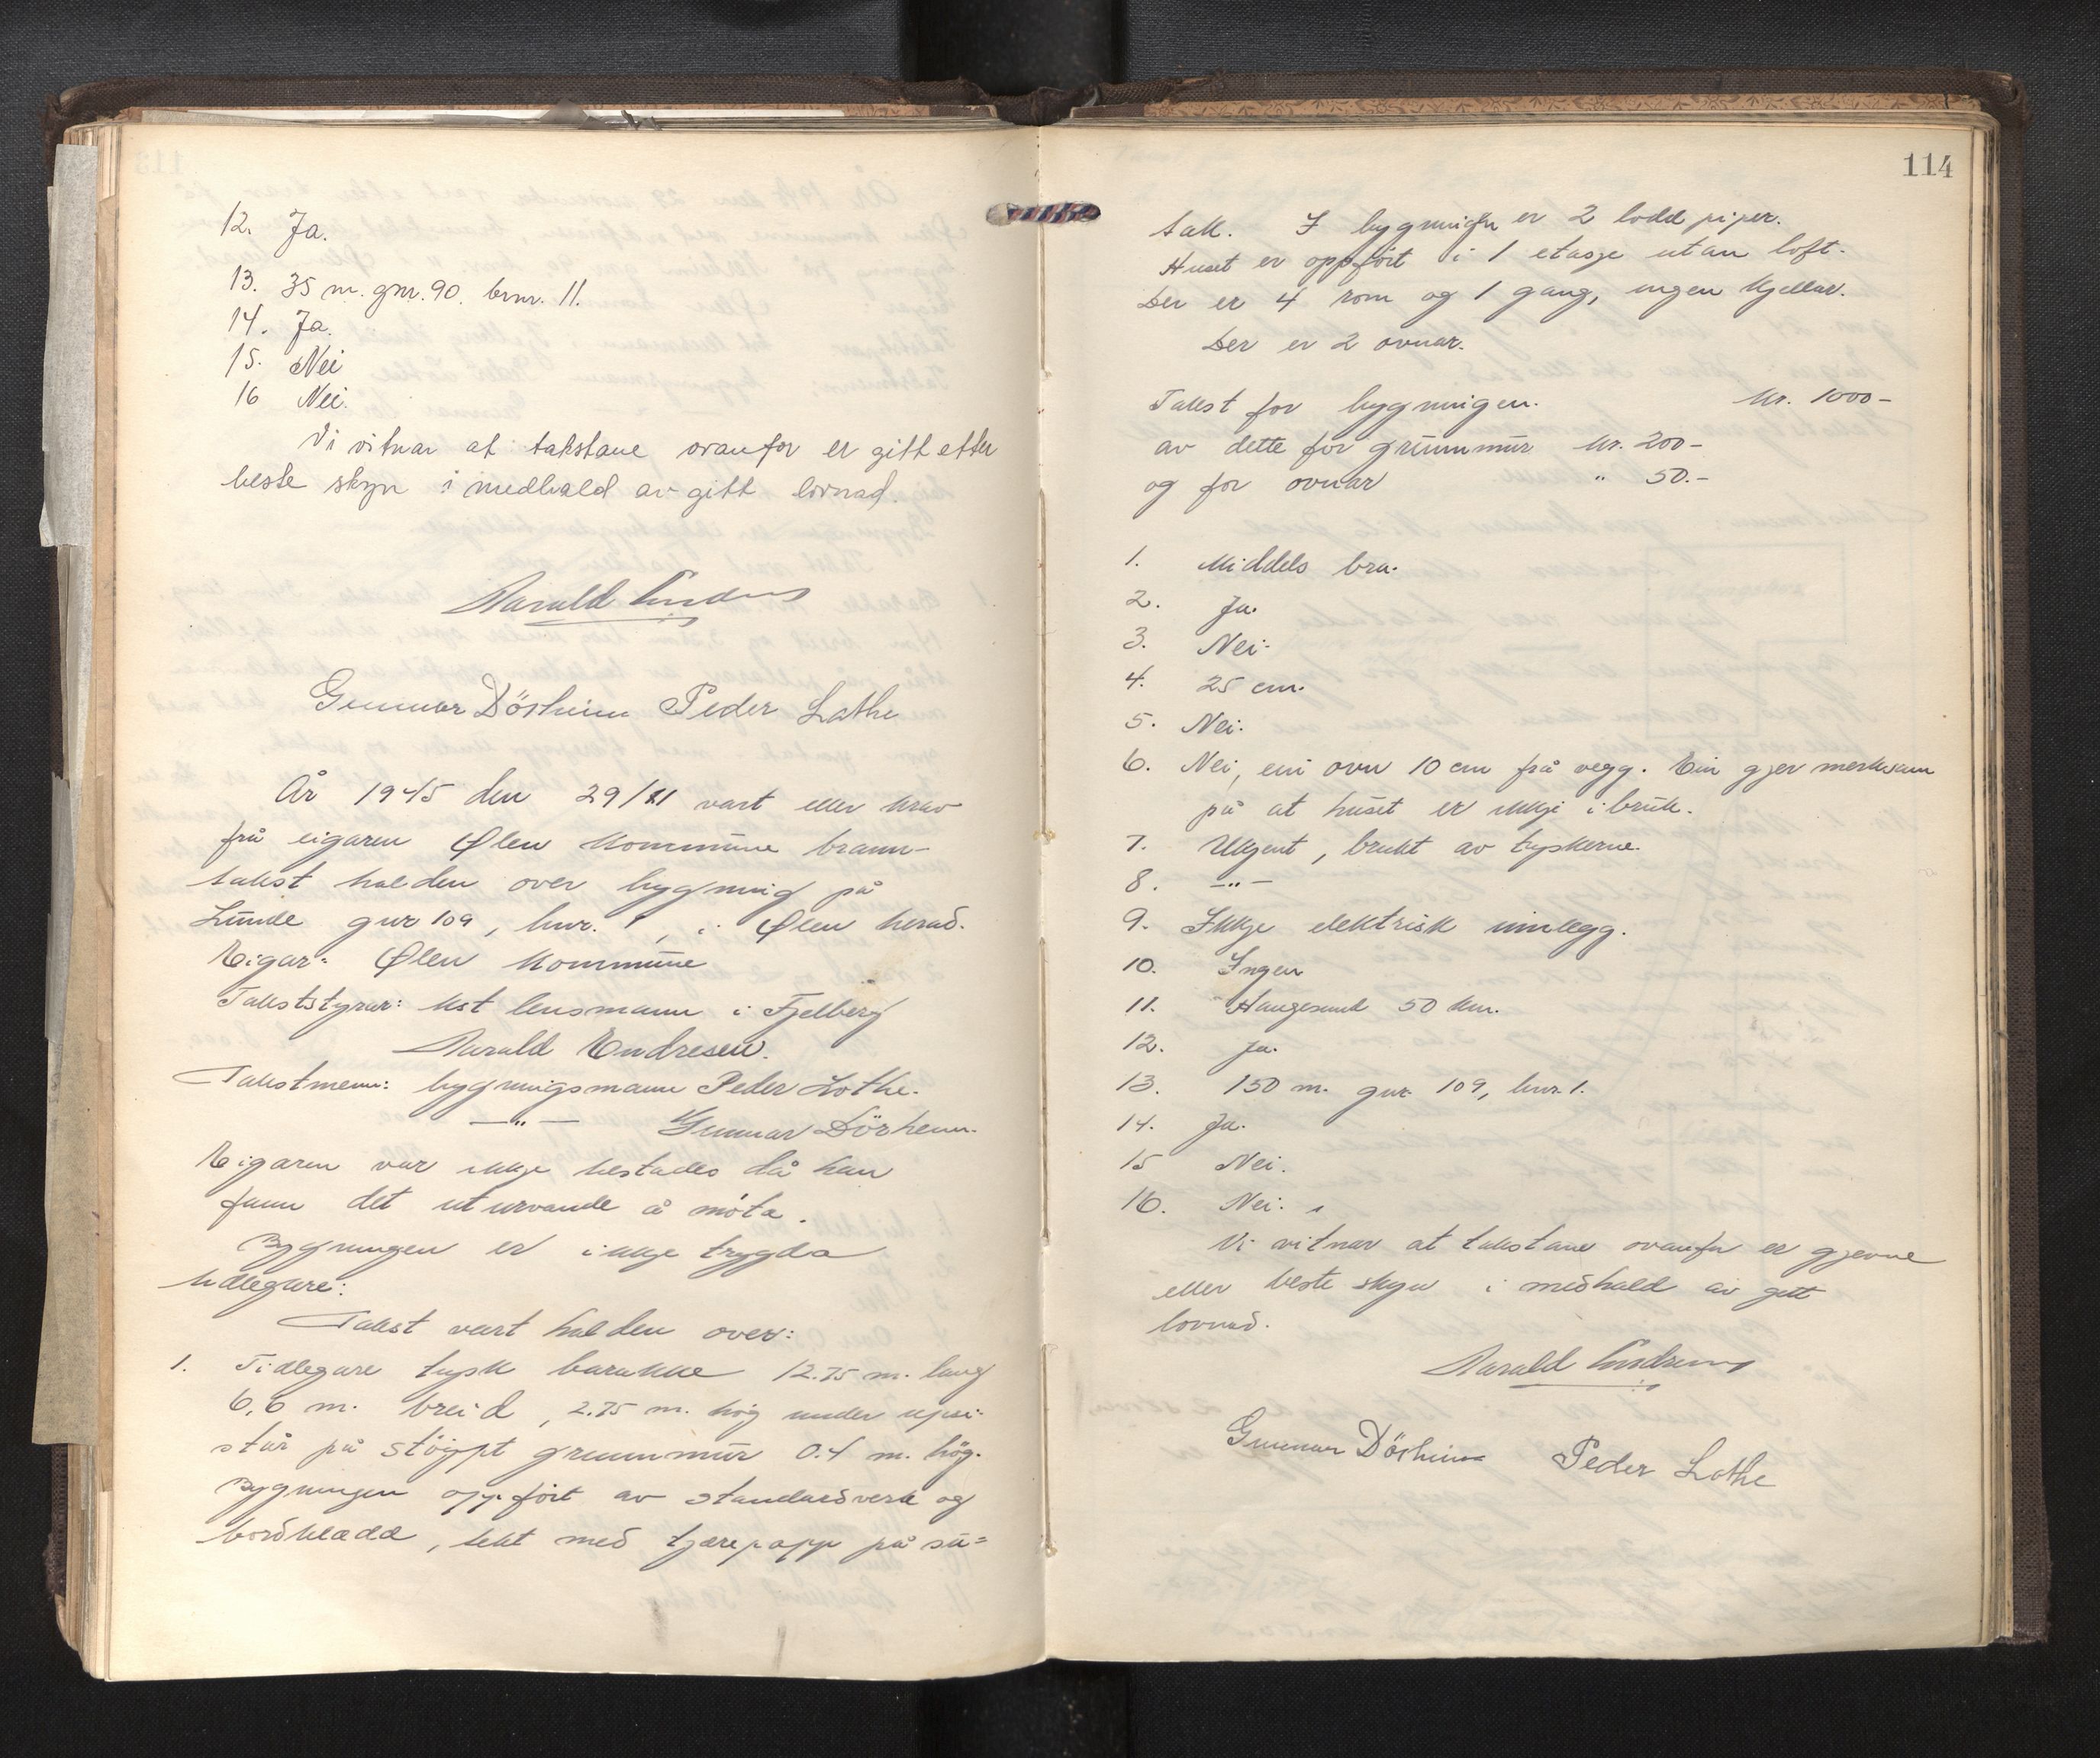 12. Ja.
13. 35 m. gnr. 90. brnr. 11.
14. Ja.
15. Nei
16 Nei.
Vi vitnar at takstane ovanfor er gitt etter
beste skyn i medhald av gitt lovnad.
Harald Endresen
Gunnar Dörheim Peder Lothe
År 1945 den 29/11 vart etter krav
frå eigaren Ølen kommune brann-
takst halden over bygning på
Lunde gnr 109, bnr. 1, i Ølen herad.
Eigar: Ølen kommune
Takststyrar: kst lensmann i Fjelberg
Harald Endresen.
Takstmenn: bygningsmann Peder Lothe.
—"— Gunnar Dörheim.
Eigaren var ikkje tilstades då han
fann det uturvande å møta.
Bygningen er ikkje trygda
tidlegare:
Takst vart halden over:
1. Tidlegare tysk barakke 12.75 m. lang
6,6 m. breid, 2.75 m. høg under upsi.
står på støypt grunnmur 0.4 m. høg.
Bygningen oppført av standardverk og
bordkledd, tekt med tjærepapp på su=
114
tak. I bygningen er 2 lodd piper.
Huset er oppført i 1 etasje utan loft.
Der er 4 rom og 1 gang, ingen kjellar.
Der er 2 ovnar.
Takst for bygningen. kr. 1000-
av dette for grunnmur kr. 200-
og for ovnar " 50.-
1. Middels bra.
2. Ja.
3. Nei.
4. 25 cm.
5. Nei.
6. Nei, ein ovn 10 cm frå vegg. Ein gjer merksam
på at huset er ikkje i bruk.
7. Ukjent, brukt av tyskerne.
8. —"—
9. Ikkje elektrisk innlegg.
10. Ingen
11. Haugesund 50 km.
12. Ja.
13. 150 m. gnr. 109, bnr. 1.
14. Ja.
15 Nei.
16. Nei.
Vi vitnar at takstane ovanfor er gjevne
etter beste skyn i medhald av gitt
lovnad.
Harald Endresen
Gunnar Dörheim Peder Lothe